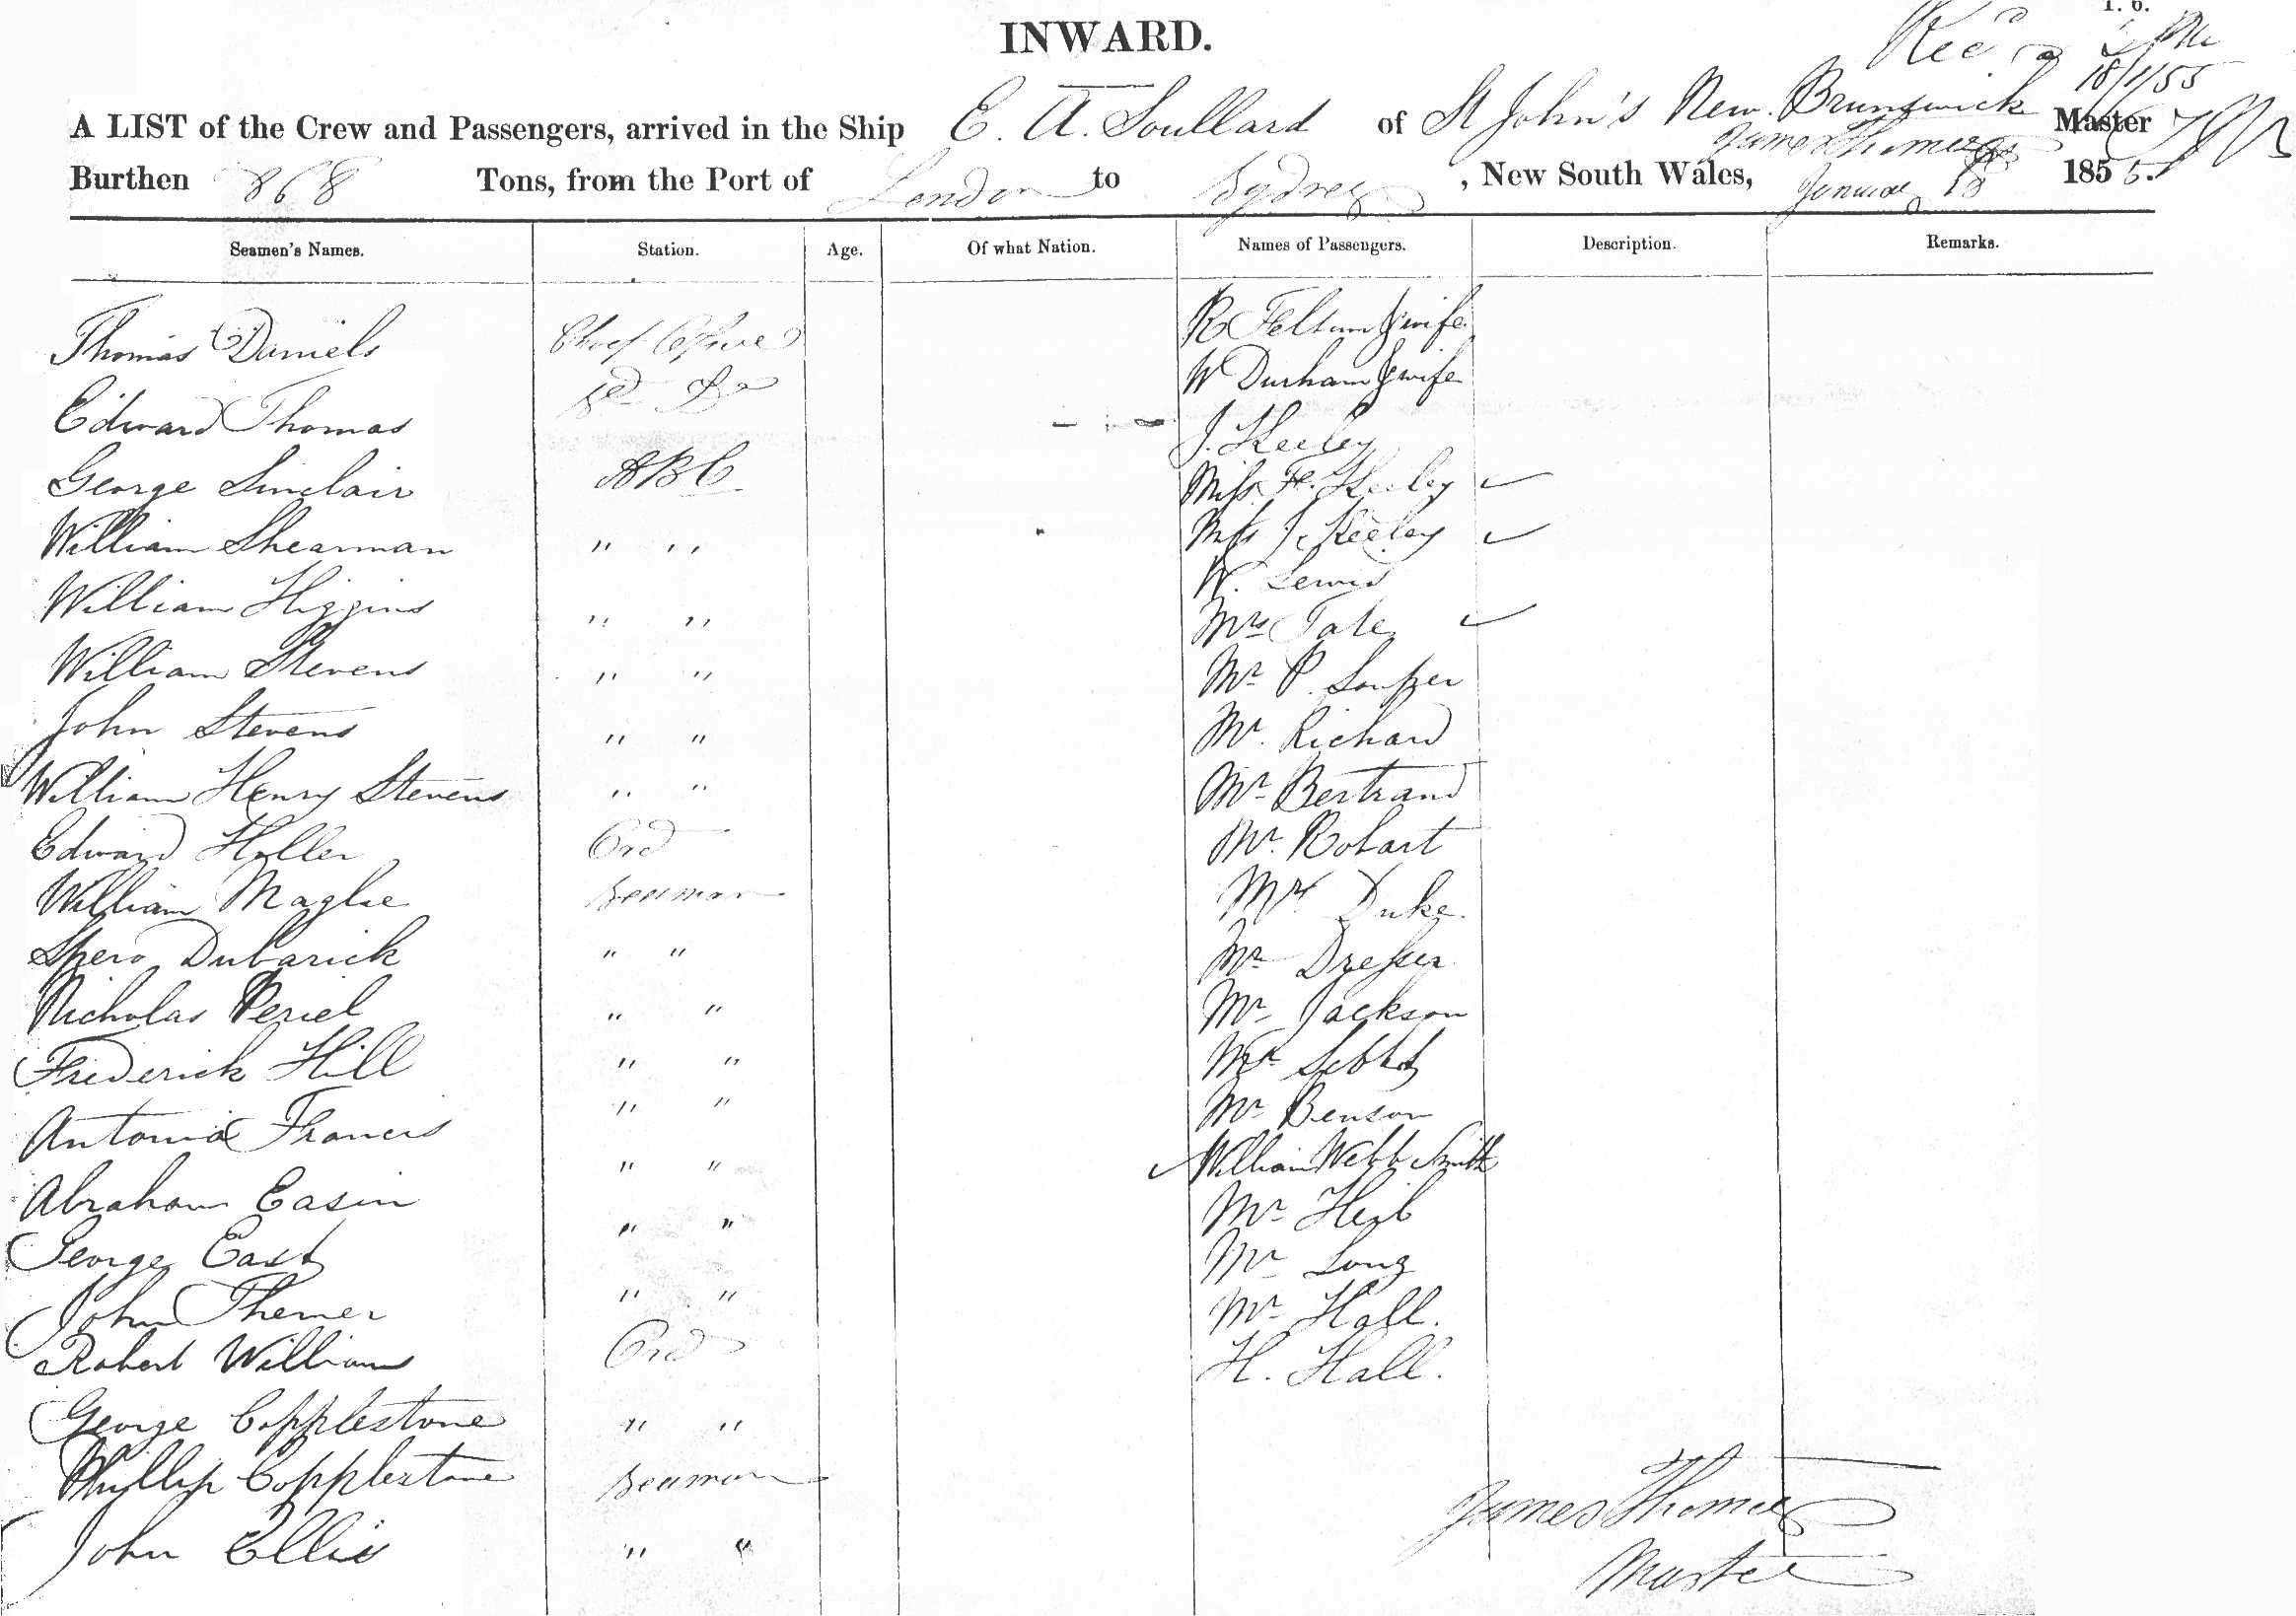 INWARD.
Rec.
18/1/55
A LIST of the Crew and Passengers, arrived in the Ship E. A. Soullard of St John's New Brunswick James Thomas Master
Burthen 868 Tons, from the Port of London to Sydney, New South Wales, January 18 1855.
Seamen's Names. Station. Age. Of what Nation. Names of Passengers. Description. Remarks.
Thomas Daniels Chief Officer R Feltum & wife
Edward Thomas 2nd Do W Durham & wife
George Sinclair ABS J. Keeley
William Shearman " " Miss F. Keeley
William Higgins " " Miss J. Keeley
William Stevens " " W. Lewis
John Stevens " " Mrs Tate
William Henry Stevens " " Mr P. Souper
Edward Holler Ord Mr. Richard
William Maglie Seaman Mr Bertrand
Spero Dubarick " " Mr. Robart
Nicholas Periel " " Mr Duke.
Frederick Hill " " Mr Dresser
Antonia Francis " " Mr Jackson
Abraham Easin " " Mr
George East " " Mr Benson
John Themer " " William Webb Smith
Robert Williams Ord Mr Heib
George Copplestone " " Mr Long
Phillip Copplestone Seaman Mr Hall.
John Ellis " " H. Hall.
James Thomas
Master